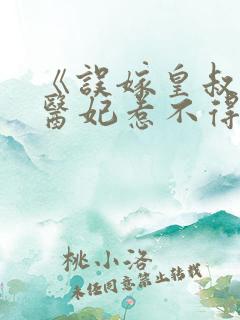 《誤嫁皇叔
醫妃惹不得
桃小洛
未經同意禁止轉載